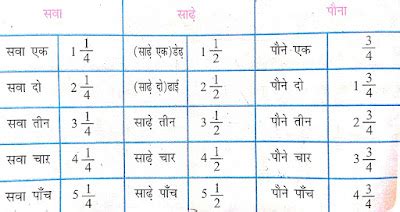 सवा साढ़े पौना
सवा एक 1 1/4 (साढ़े एक)डेड़ 1 1/2 पौने एक 3/4
सवा दो 2 1/4 (साढ़े दो)ढाई 2 1/2 पौने दो 1 3/4
सवा तीन 3 1/4 साढ़े तीन 3 1/2 पौने तीन 2 3/4
सवा चार 4 1/4 साढ़े चार 4 1/2 पौने चार 3 3/4
सवा पाँच 5 1/4 साढ़े पाँच 5 1/2 पौने पाँच 4 3/4